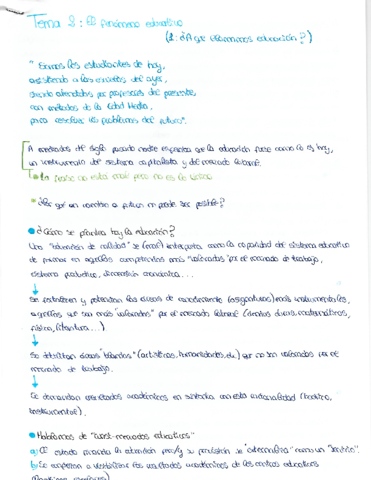 Tema 2: El fenómeno educativo
(1: ¿A qué llamamos educación?)
" Somos los estudiantes de hoy,
asistiendo a las escuelas del ayer,
siendo atendidos por profesores del presente,
con métodos de la Edad Media,
para resolver los problemas del futuro".
A mediados del siglo pasado nadie esperaba que la educación fuese como lo es hoy,
un instrumento del sistema capitalista y del mercado laboral.
la frase no está mal pero no es la
¿Por qué un cambio a futuro no puede ser posible?
● ¿Cómo se plantea hoy la educación?
Una "educación de calidad" se (mal) interpreta como la capacidad del sistema educativo
de formar en aquellas competencias más "valoradas" por el mercado de trabajo,
sistema productivo, dimensión económica...
↓
Se establecen y potencian las áreas de conocimiento (asignaturas) más instrumentales,
aquellas que son más "valoradas" por el mercado laboral (ciencias duras, matemáticas,
física, literatura...)
↓
Se debilitan áreas "blandas" (artísticas, humanidades, etc.) que no son valoradas por el
mercado de trabajo.
↓
Se demandan resultados académicos en sintonía con esta racionalidad (técnica,
instrumental).
● Hablamos de "cuasi-mercados educativos"
a) El estado provee la educación pero/y su provisión se "externaliza" como un "servicio".
b) Se empiezan a visibilizar los resultados académicos de los centros educativos